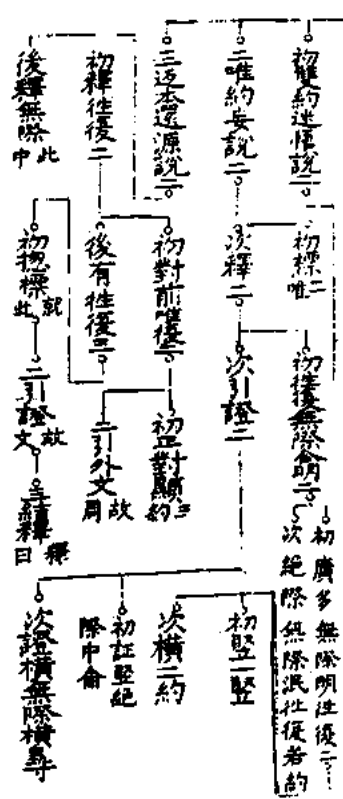 初雙約迷悟說二
二唯約妄說二
三返本還源說二
初釋往復二
後釋無際 此中
初標 二唯
次釋二
初對前唯復二
後有往復三
初總標 就此
初往復無際命明二
次引證二
初正對顯 三約
二引外文 故周
二引證 故文
三結釋 釋曰
初廣多無際明往復二
次絕際無際泯往復者約
初豎二豎
次橫二約
初証豎絕際中命
次證橫無際橫尋